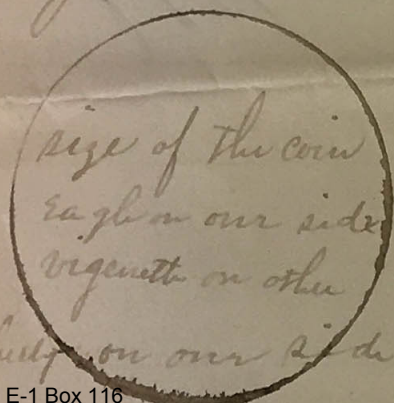 size of the coin
Eagle on one side
vignette on other
on one side
E-1 Box 116